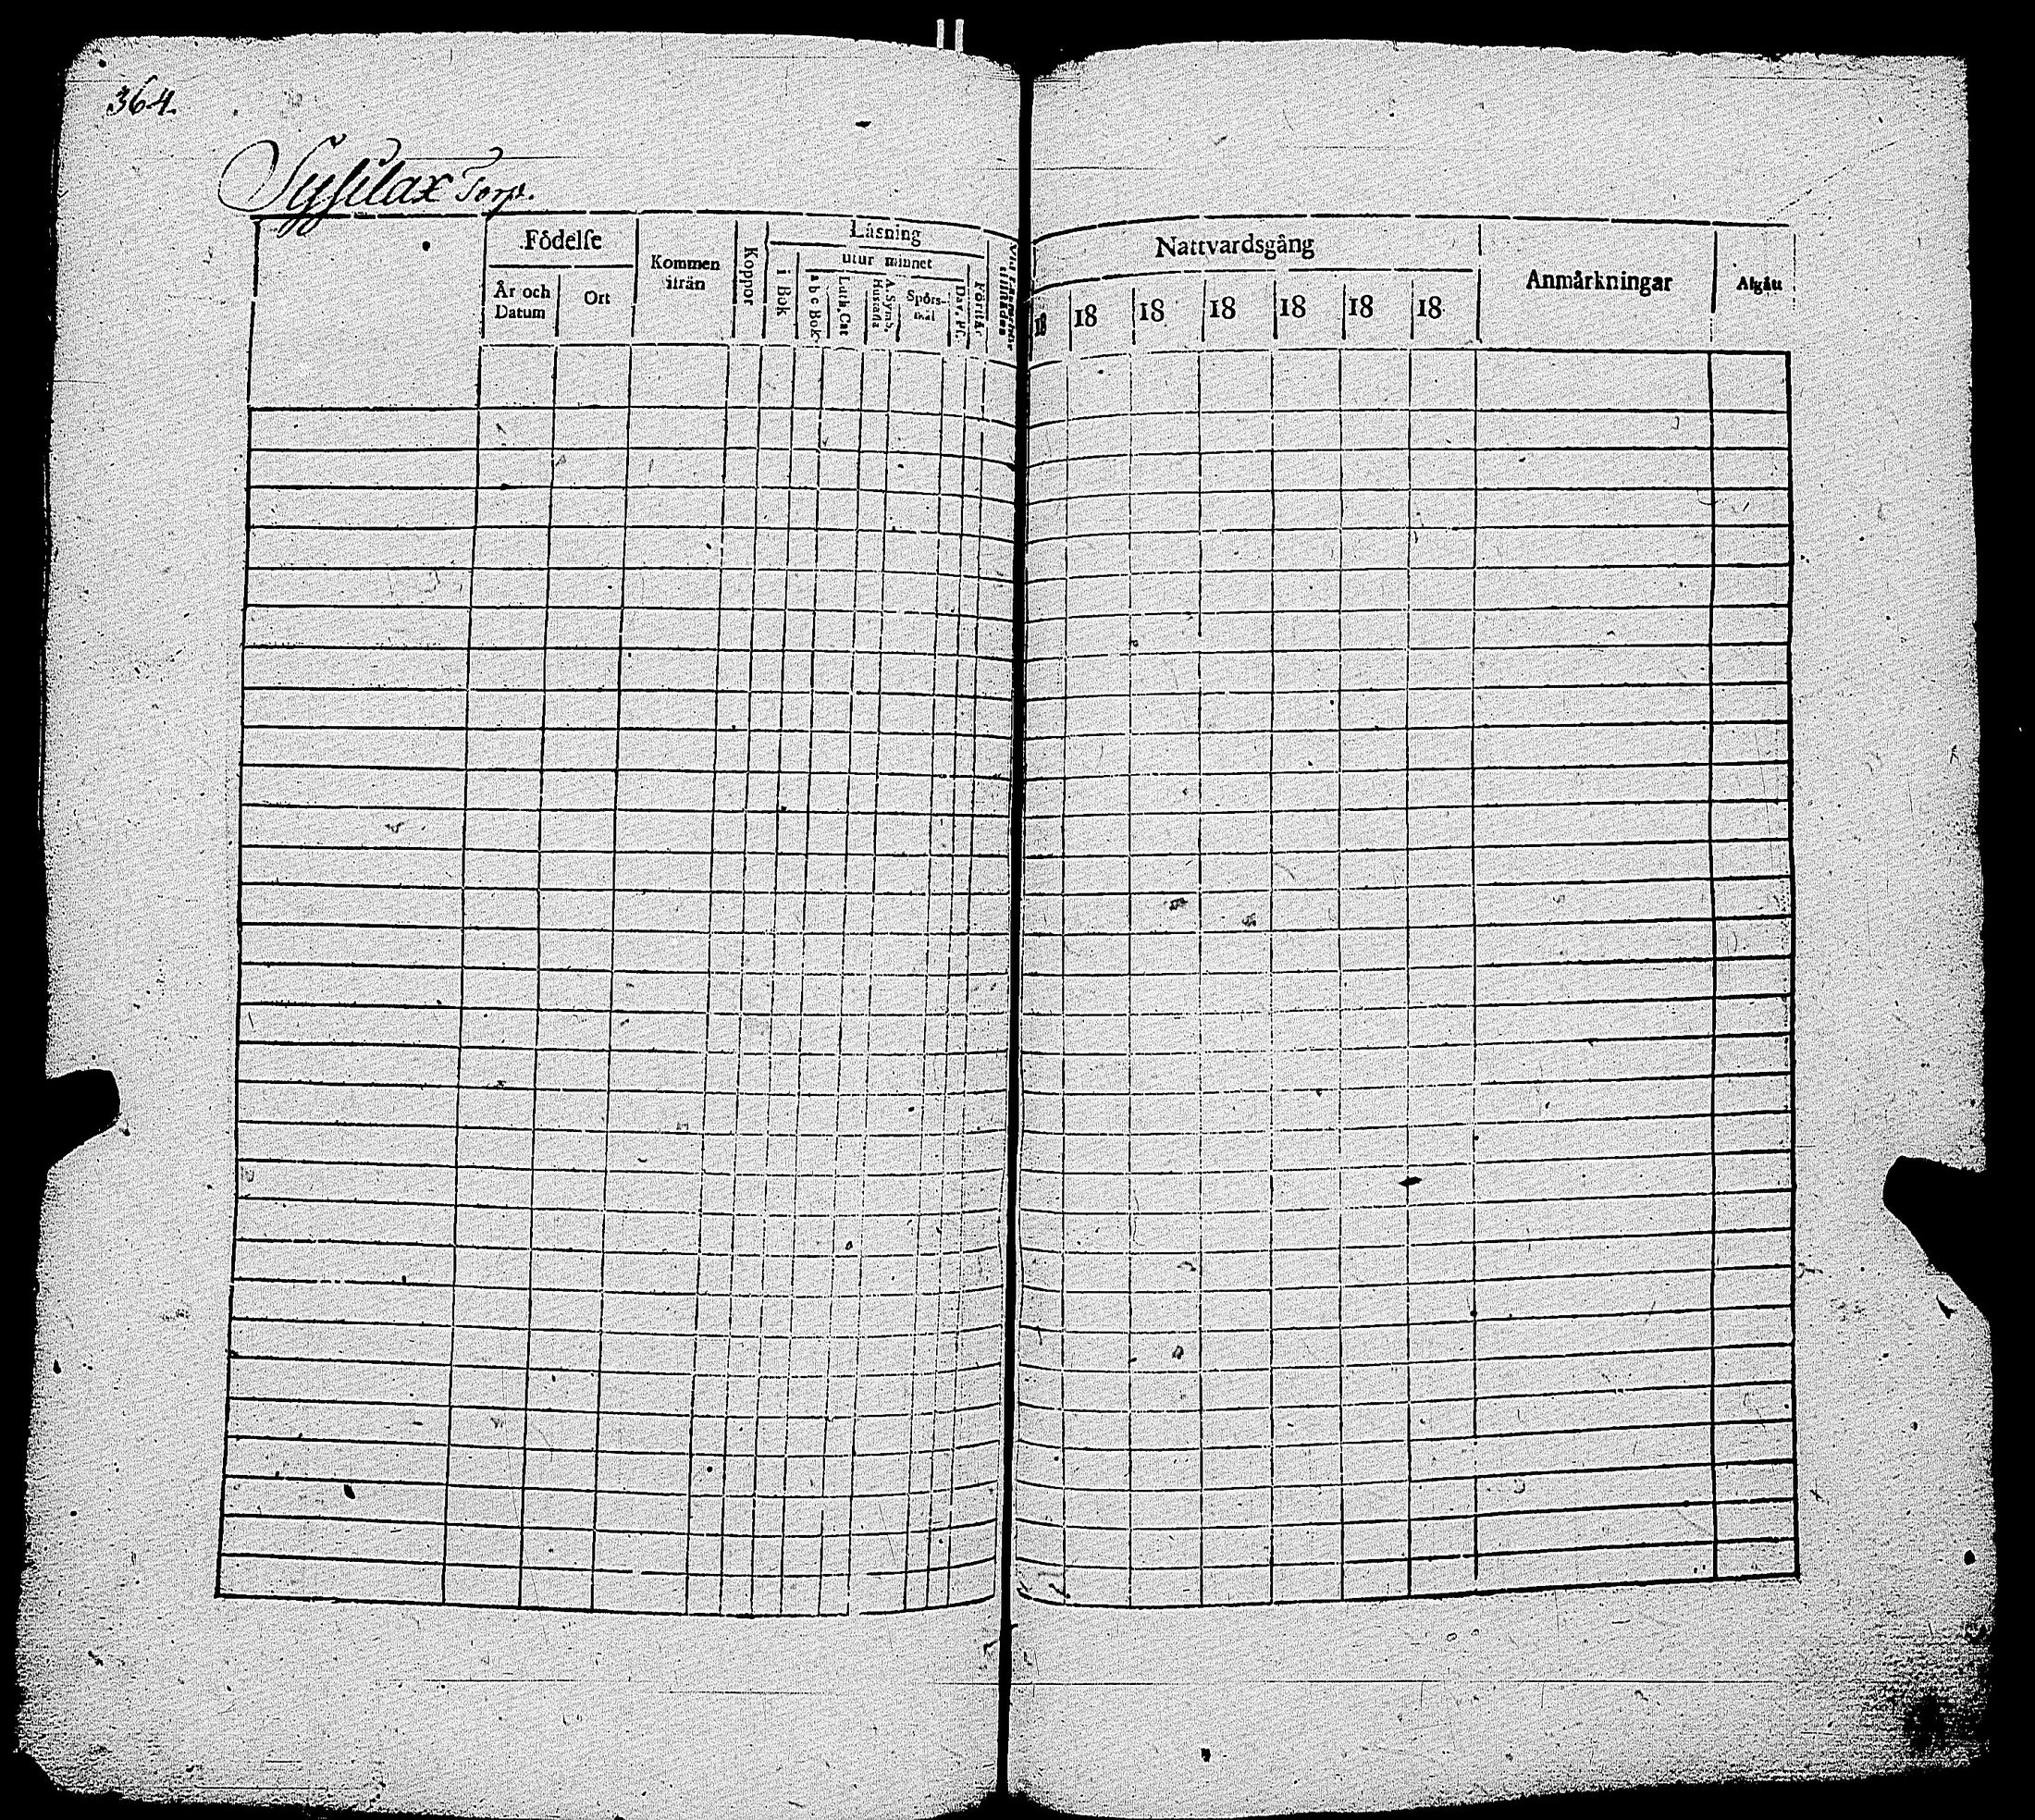 364.
Torp.
Födelse
År och Datum
Ort
Kommen ifrån
Koppor
Läsning
i Bok
utur minnet
a b c Bok
Luth. Cat
A. Symb. Hustafla
Spörsmål
Dav. Ps.
Förstår
Nattvardsgång
18 18 18 18 18 18 18
Anmärkningar
Afgått